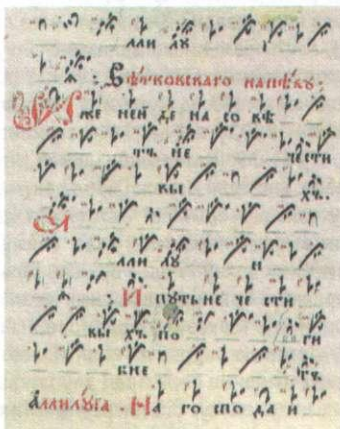 лли лу
ѧ : Вѣтковскаго напѣву:
И же неи де на со вѣ
тъ не чести
вы хъ.
А
лли лу и
ѧ : И путь не че сти
вы хъ по ги
бне тъ
Аллилуїа . На го спо да и